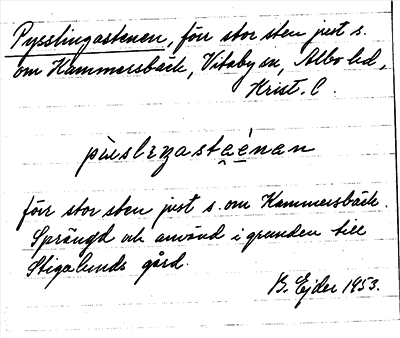 Pysslingastenen, förr stor sten just s.
om Hammersbäck, Vitaby sn, Albo hd,
Krist. l.
pẏslɪŋastæ̀nan
förr stor sten just s. om Hammersbäck.
Sprängd och använd i grunden till
Stigalunds gård.
B. Ejder 1953.